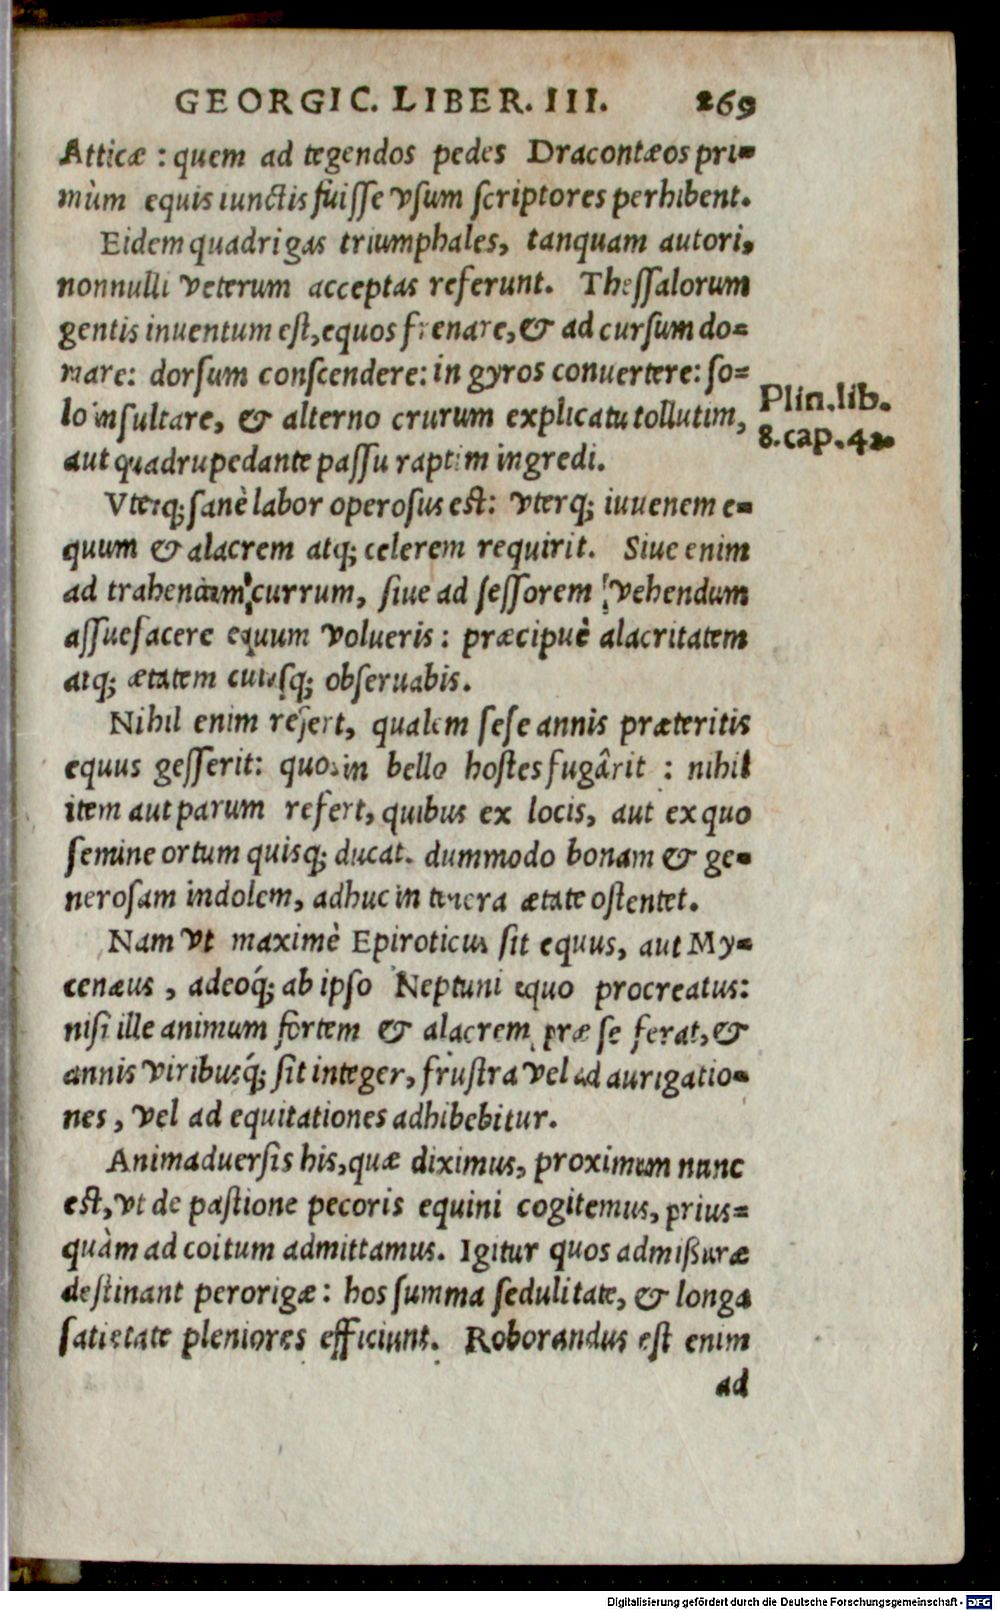 GEORGIC. LIBER. III. 269
Atticæ : quem ad tegendos pedes Dracontæos pri=
mùm equis iunctis fuiſſe vſum ſcriptores perhibent.
Eidem quadrigas triumphales, tanquam autori,
nonnulli veterum acceptas referunt. Theſſalorum
gentis inuentum eſt, equos frenare, & ad curſum do=
mare: dorſum conſcendere: in gyros conuertere: ſo=
lo inſultare, & alterno crurum explicatu tollutim,
aut quadrupedante paſſu raptim ingredi.
Plin.lib.
8.cap.42.
Vterq; ſanè labor operoſus eſt: vterq; iuuenem e=
quum & alacrem atq; celerem requirit. Siue enim
ad trahendum currum, ſiue ad ſeſſorem vehendum
aſſuefacere equum volueris: præcipuè alacritatem
atq; ætatem cuiuſq; obſeruabis.
Nihil enim refert, qualem ſeſe annis præteritis
equus geſſerit: quos in bello hoſtes fugârit : nihil
item aut parum refert, quibus ex locis, aut ex quo
ſemine ortum quisq; ducat. dummodo bonam & ge=
neroſam indolem, adhuc in tenera ætate oſtentet.
Nam vt maximè Epiroticus ſit equus, aut My=
cenæus, adeoq́; ab ipſo Neptuni equo procreatus:
niſi ille animum fortem & alacrem præ ſe ferat, &
annis viribusq́; ſit integer, fruſtra vel ad aurigatio=
nes, vel ad equitationes adhibebitur.
Animaduerſis his, quæ diximus, proximum nunc
eſt, vt de paſtione pecoris equini cogitemus, prius=
quàm ad coitum admittamus. Igitur quos admißuræ
deſtinant perorigæ: hos ſumma ſedulitate, & longa
ſatietate pleniores efficiunt. Roborandus eſt enim
ad
Digitalisierung gefördert durch die Deutsche Forschungsgemeinschaft - DFG